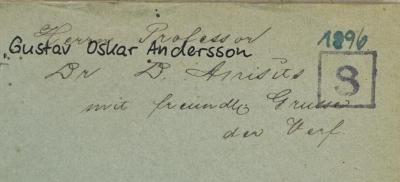 Herrn Professor
Gustav Oskar Andersson
1896
Dr D.
8
mit freundl. Grusse
der Verf.